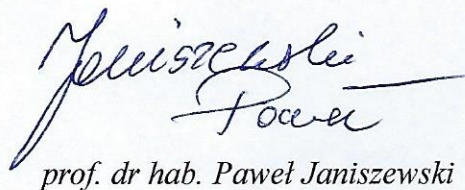 Janiszewski
Paweł
prof. dr hab. Paweł Janiszewski